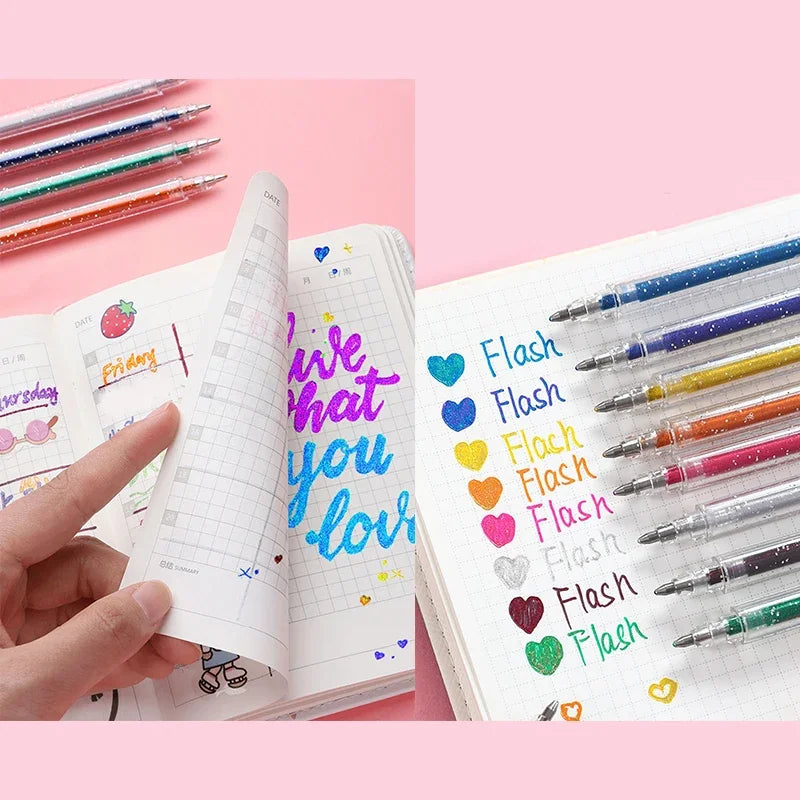 DATE
月 日/周
日/周
DATE
Friday
live
what
you
love
总结 SUMMARY
Flash
Flash
Flash
Flash
Flash
Flash
Flash
Flash